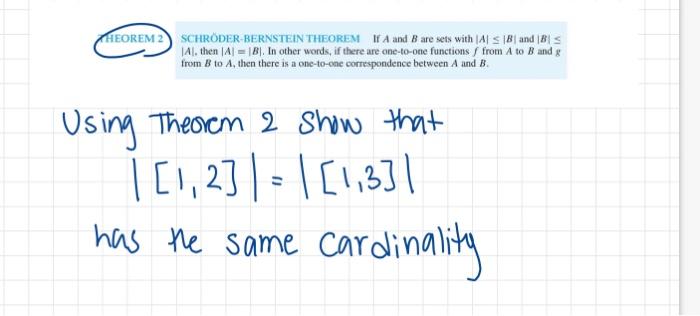 THEOREM 2 SCHRÖDER-BERNSTEIN THEOREM If A and B are sets with |A| ≤ |B| and |B| ≤
|A|, then |A| = |B|. In other words, if there are one-to-one functions f from A to B and g
from B to A, then there is a one-to-one correspondence between A and B.
Using Theorem 2 Show that
|[1,2]| = |[1,3]|
has the same cardinality